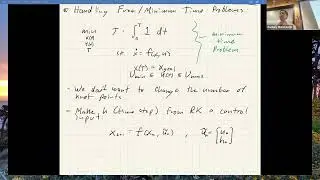 • Handling Free/Minimum Time Problems
min x(t) u(t) T J = ∫₀ᵀ 1 dt
s.t. ẋ = f(x,u)
x(T) = xgoal
Umin ≤ u(t) ≤ Umax
minimum time Problem
- We don't want to change the number of knot points
- Make h (time step) from RK a control input
xn+1 = f(xn, ũn) , ũn = [un hn]